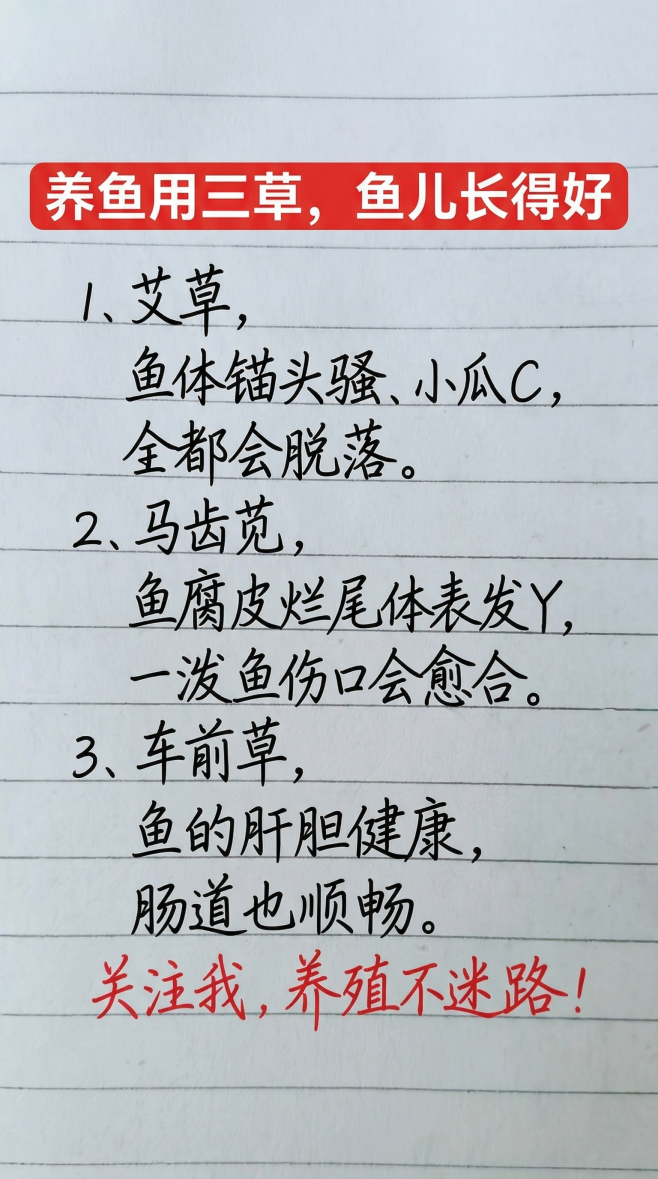 养鱼用三草，鱼儿长得好
1、艾草，
鱼体锚头骚、小瓜C，
全都会脱落。
2、马齿苋，
鱼腐皮烂尾体表发Y，
一泼鱼伤口会愈合。
3、车前草，
鱼的肝胆健康，
肠道也顺畅。
关注我，养殖不迷路！